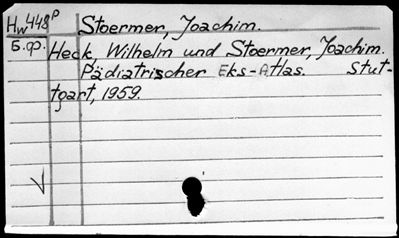 Hw448P Stoermer, Joachim.
Б.ф. Heck, Wilhelm und Stoermer, Joachim.
Pädiatrischer Eks-Atlas. Stut-
tgart, 1959.